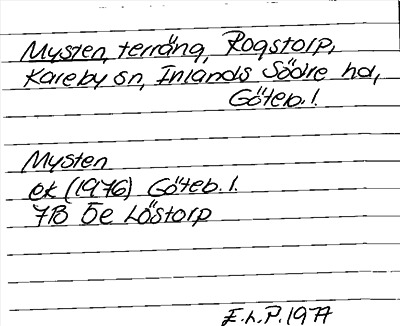 Mysten, terräng, Rogstorp,
Kareby sn, Inlands Södre hd,
Göteb. l.
Mysten
ek (1976) Göteb. l.
7B 5e Löstorp
E.L.P. 1977